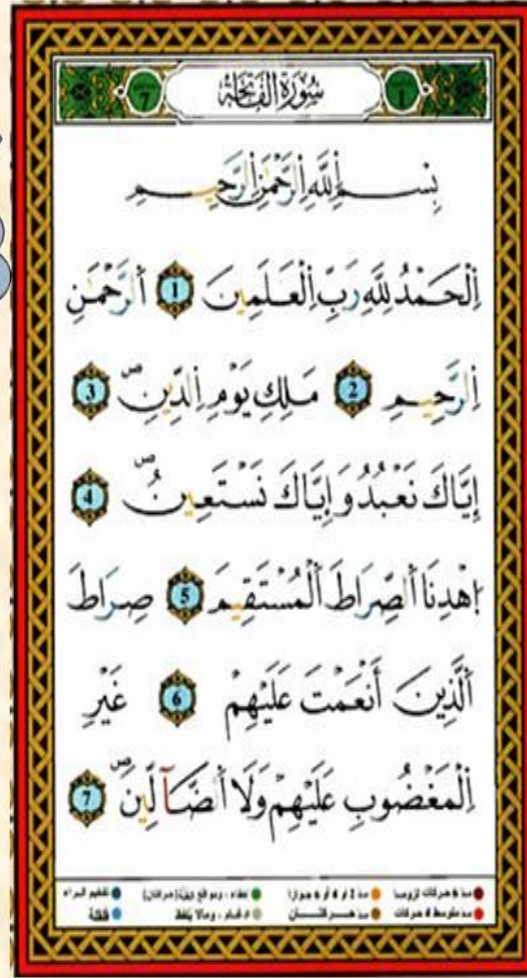 سُورَةُ الْفَاتِحَةِ
7
1
بِسْمِ اِللَّهِ اِلرَّحْمَٰنِ اِلرَّحِيمِ
اِلْحَمْدُ لِلَّهِ رَبِّ اِلْعَٰلَمِينَ 1 اَلرَّحْمَٰنِ
اِلرَّحِيمِ 2 مَلِكِ يَوْمِ اِلدِّينِ ۖ 3
إِيَّاكَ نَعْبُدُ وَإِيَّاكَ نَسْتَعِينُ ۖ 4
اِهْدِنَا اَلصِّرَٰطَ اَلْمُسْتَقِيمَ 5 صِرَٰطَ
اَلَّذِينَ أَنْعَمْتَ عَلَيْهِمْ 6 غَيْرِ
اِلْمَغْضُوبِ عَلَيْهِمْ وَلَا اَلضَّآلِّينَ ۖ 7
مد 6 حركات لزوما مد 2 أو 4 أو 6 جوازا إخفاء، ومواقع الغنة (حركتان) تفخيم الراء
مد متوسط 4 حركات مد حركتان ادغام، ومالا يلفظ